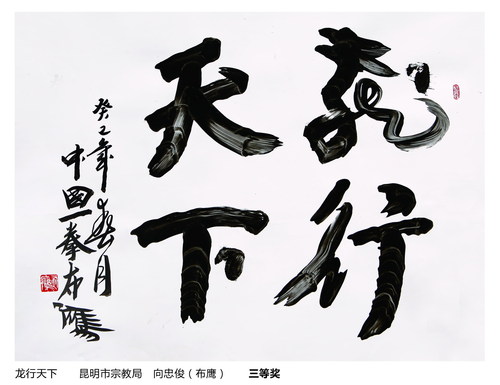 龍行
天下
癸巳年春月
中國一拳布鷹
龙行天下 昆明市宗教局 向忠俊（布鹰） 三等奖